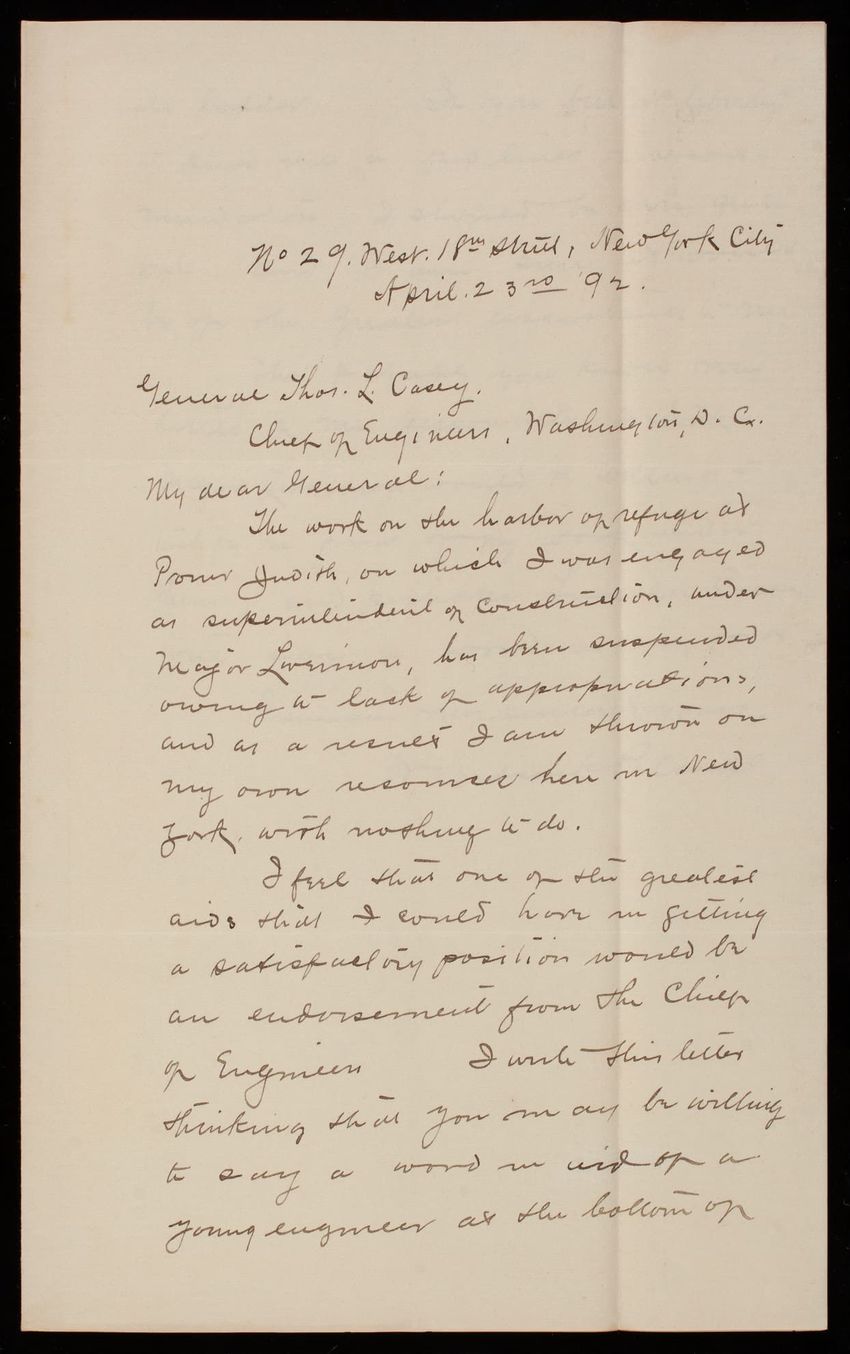 No 29. West. 18th street, New York City
April. 23rd '92.
General Thos. L. Casey.
Chief of Engineers, Washington, D. C.
My dear General:
The work on the harbor of refuge at
Point Judith, on which I was engaged
as superintendent of construction, under
Major Livermore, has been suspended
owing to lack of appropriations,
and as a result I am thrown on
my own resources here in New
York, with nothing to do.
I feel that one of the greatest
aids that I could have in getting
a satisfactory position would be
an endorsement from the Chief
of Engineers I write this letter
thinking that you may be willing
to say a word in aid of a
young engineer at the bottom of